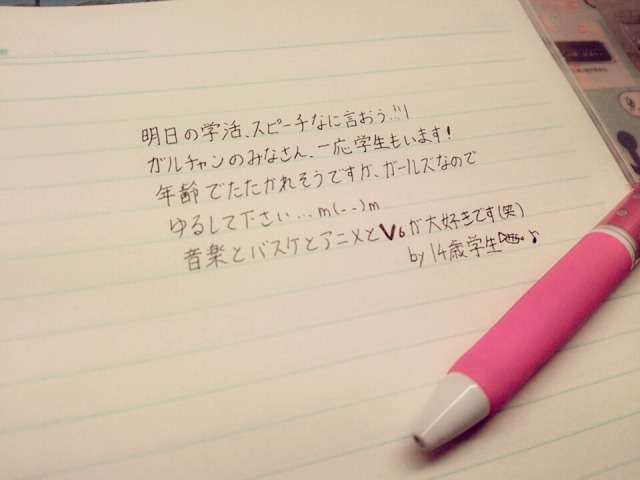 明日の学活、スピーチなに言おう…!!
ガルチャンのみなさん、一応学生もいます!
年齢でたたかれそうですが、ガールズなので
ゆるして下さい…m(--)m
音楽とバスケとアニメとV6が大好きです(笑)
by 14歳学生 ♪